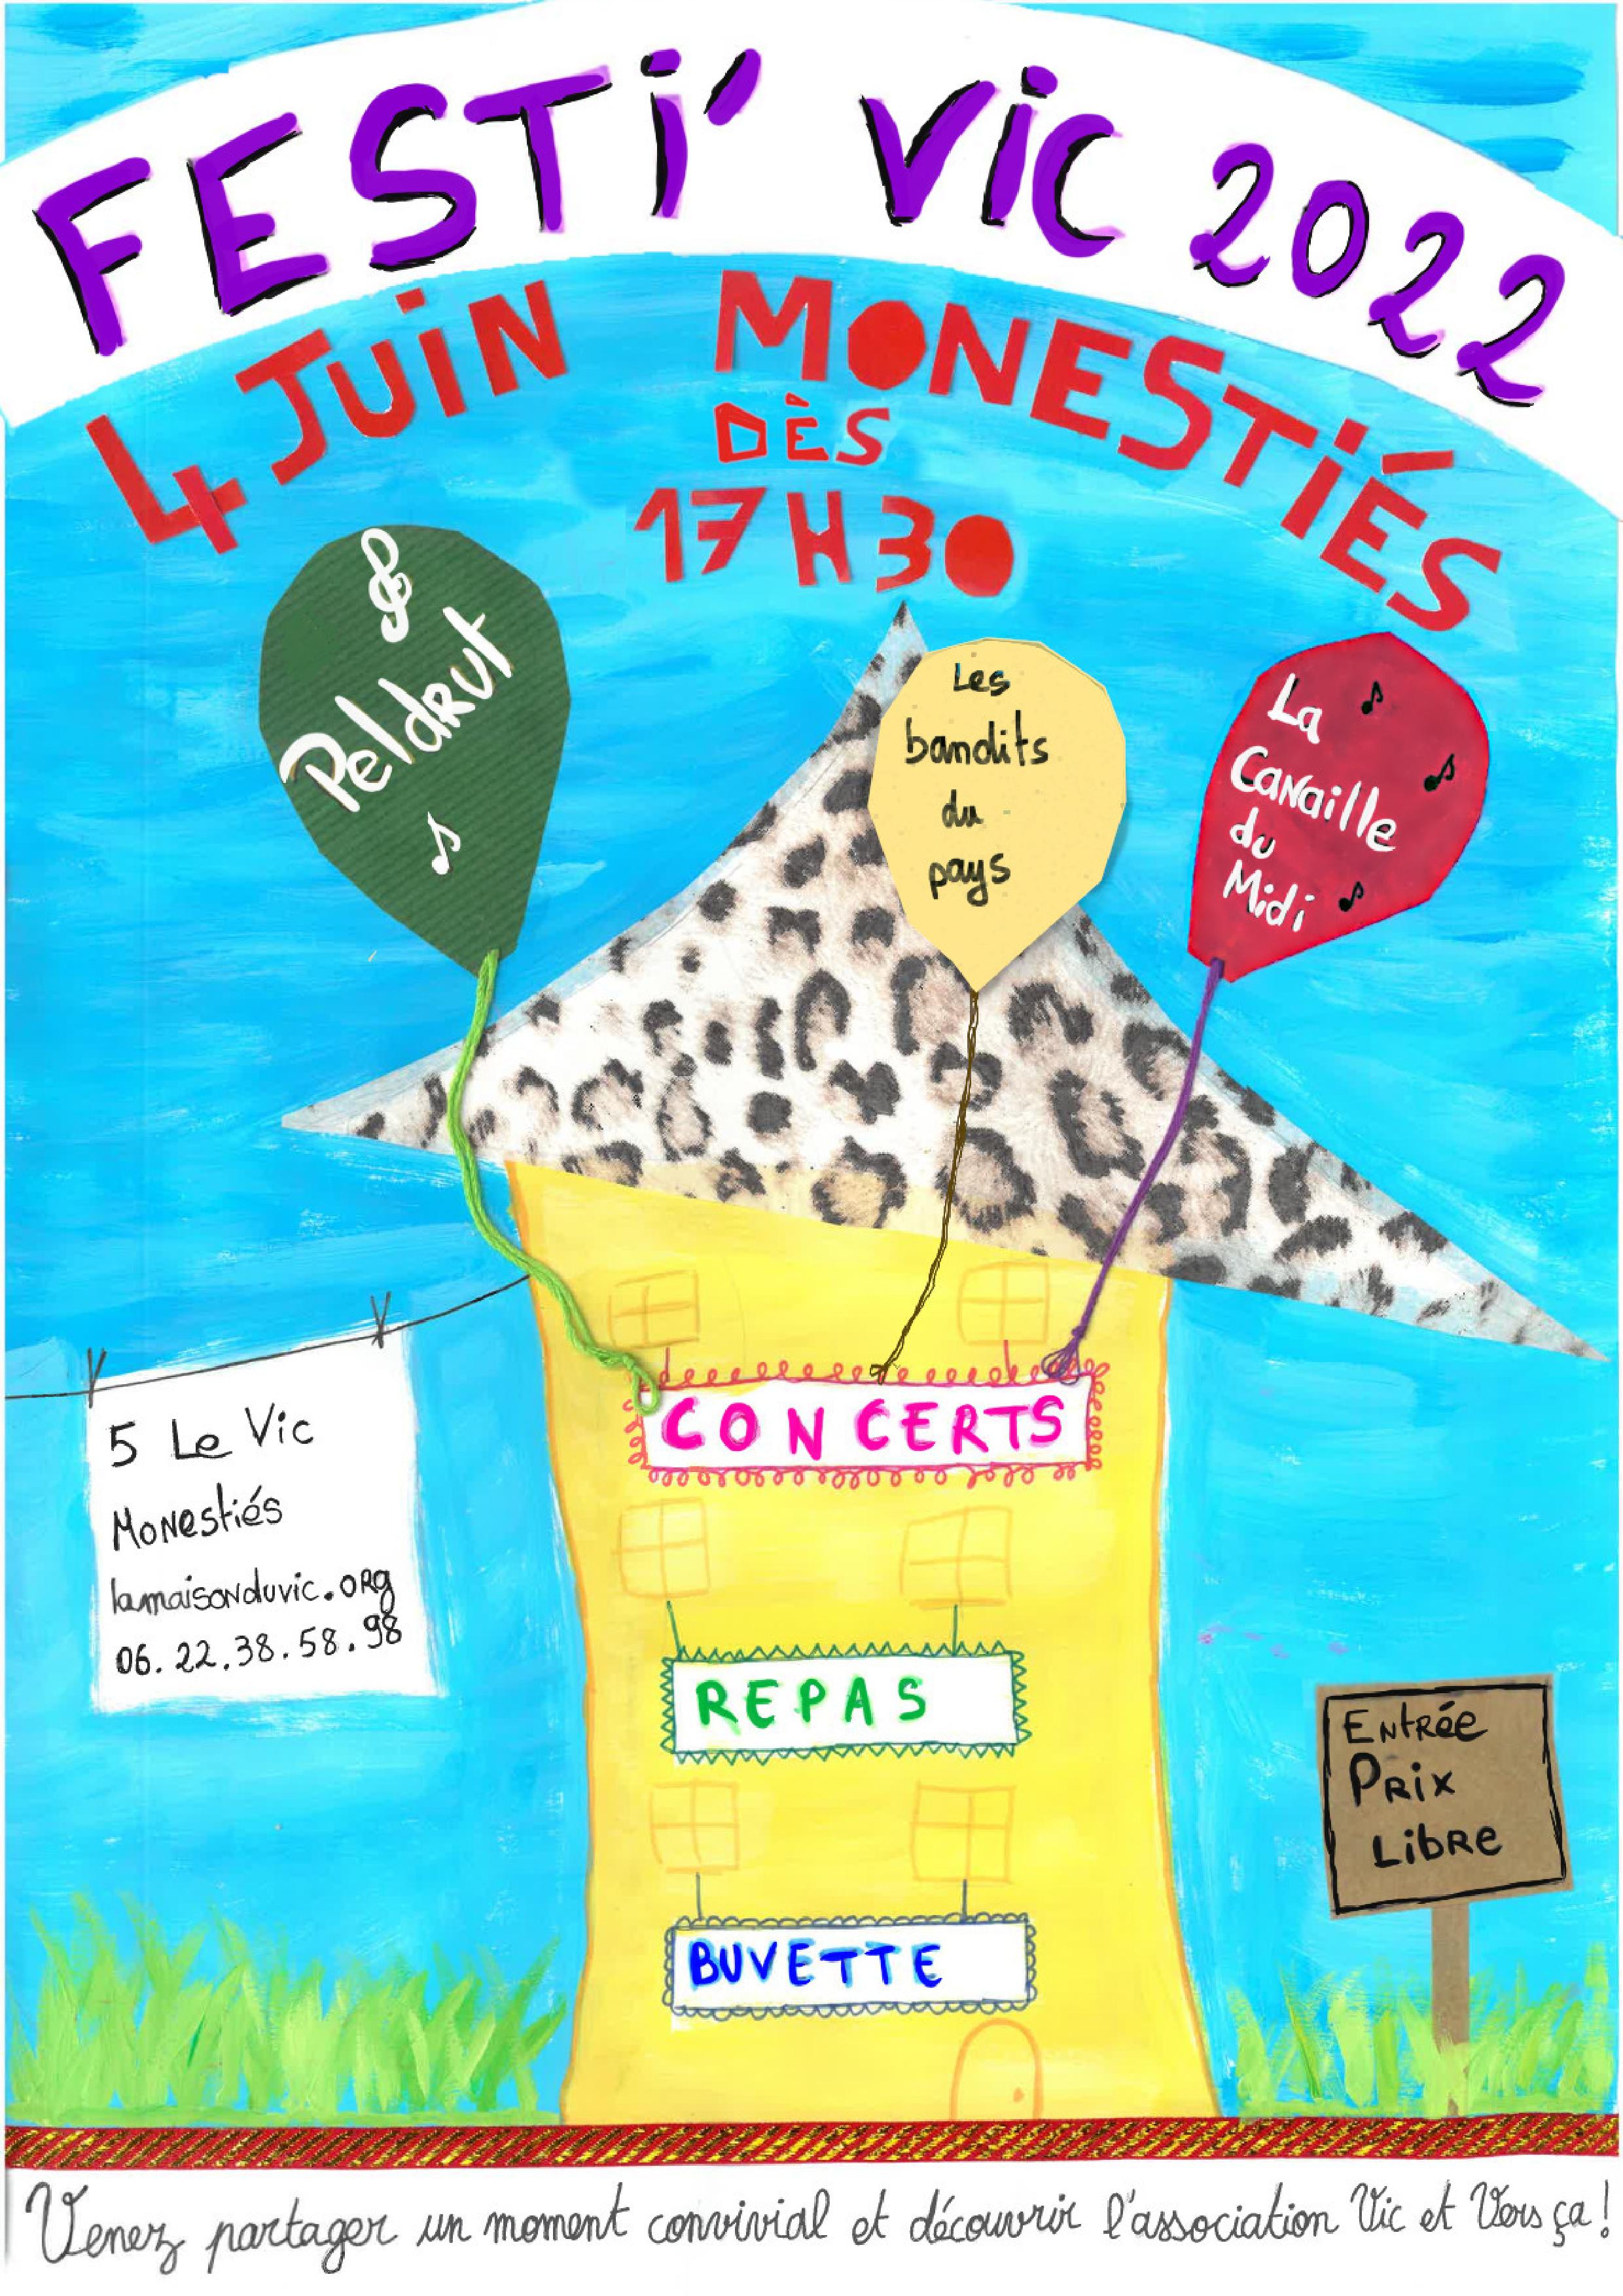 FESTi' ViC 2022
4 JUiN MONESTiÉS
DÈS
17H30
Peldrut
Les
bandits
du
pays
La
Canaille
du
Midi
CONCERTS
5 Le Vic
Monestiés
lamaisonduvic.org
06.22.38.58.98
REPAS
Entrée
Prix
Libre
BUVETTE
Venez partager un moment convivial et découvrir l'association Vic et Vers ça!